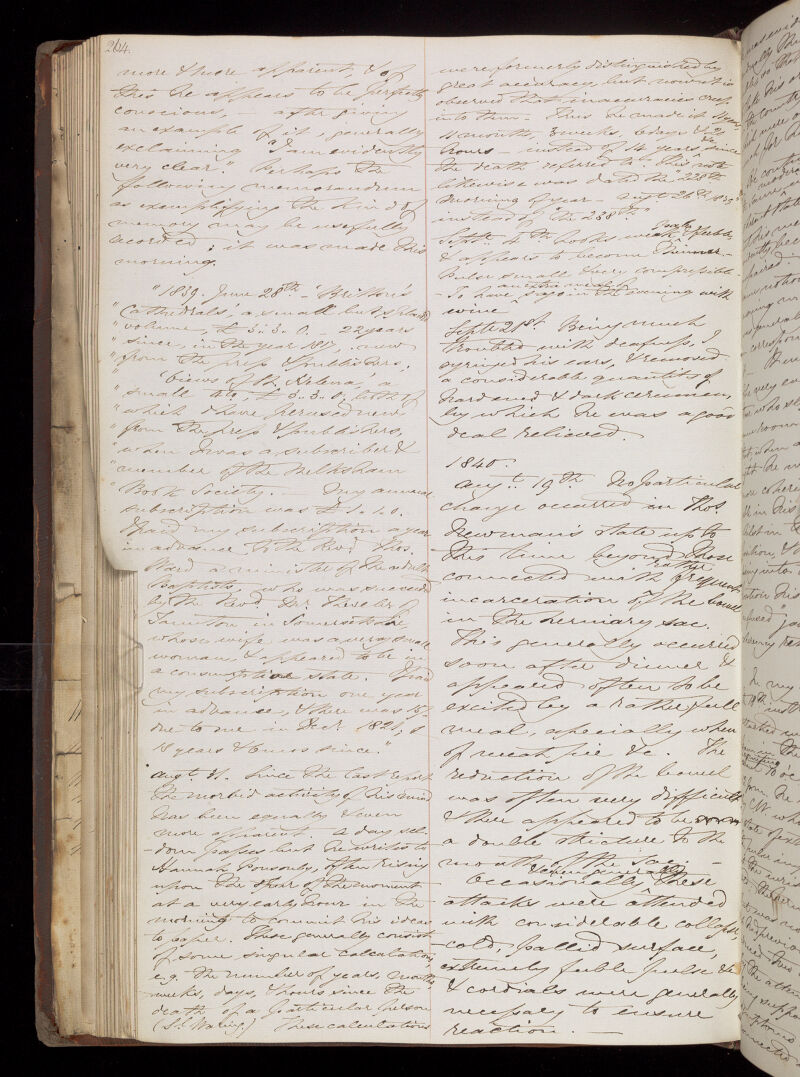 264.
more & more apparent, & of
this he appears to be perfectly
conscious, — after giving
an example of it, generally
exclaiming "I am evidently
very clear". Perhaps the
following memorandum
as exemplifying the kind of
memory may be usefully
recorded; it was made this
morning.
"1839. June 28th – 'Britton's
"Cathedrals, a small but splendid
"volume, £3.3.0. – 22 years
"since, in the year 1817, new
"from the press & publishers;
"'Views of St. Helena, a
"small 4to, £3.3.0, both of
"which I have perused new
"from the press & publishers,
"when I was a subscriber &
"member of the Melksham
"Book Society. – My annual
subscription was £1.1.0.
I paid my subscription a year
in advance, to the Revd. Thos.
Ward a minister of the adult
Baptists, who was succeeded
by the Revd. Mr.
Taunton in Somersetshire
whose wife was a very small
woman, & appeared to be in
a consumptive state. I paid
my subscription one year
in advance, & there was
due to me in Decr. 1821,
18 years & 6 mos since."
Augt. 31. Since the last report
the morbid activity of his mind
has been equally & even
more apparent. A day sel-
-dom passes but he writes to
Hannah Ponsonby, often rising
upon the spur of the moment
at a very early hour in the
morning to commit his ideas
to paper. These generally consist
of some singular calculation,
e.g. the number of years, months
weeks, days, & hours since the
death of a particular person
(S. Waring) These calculations
were formerly distinguished by
great accuracy, but now it is
observed that inaccuracies creep
into them – Thus he made it 4 years
4 months, 3 weeks, 6 days & 2
hours – instead of 14 years since
the death referred to. This note
likewise was dated the "228th
morning of year – Augt 26th, 1839"
instead of the 238th."
Septr. 4th. Looks weak & feeble,
& appears to become thinner –
Pulse small & very compressible –
To have an extra meal
sago in the evening with
wine
Septr 21st Being much
troubled with deafness, I
syringed his ears, & removed
a considerable quantity of
hardened & dark cerumen,
by which he was a good
deal relieved.
1840.
Augt. 19th. No particular
change occurred in Thos.
Newman's state up to
this time beyond those
connected with rather frequent
incarceration of the bowel
in the herniary sac.
This generally occurred
soon after dinner &
appeared often to be
excited by a rather full
meal, especially when
of meat pie &c. The
reduction of the bowel
was often very difficult
& there appeared to be
a double stricture to the
mouth of the sac. –
Occasionally & even generally these
attacks were attended
with considerable collapse,
cold, pallid surface,
extremely feeble pulse &c
& cordials were generally
necessary to ensure
reaction. —